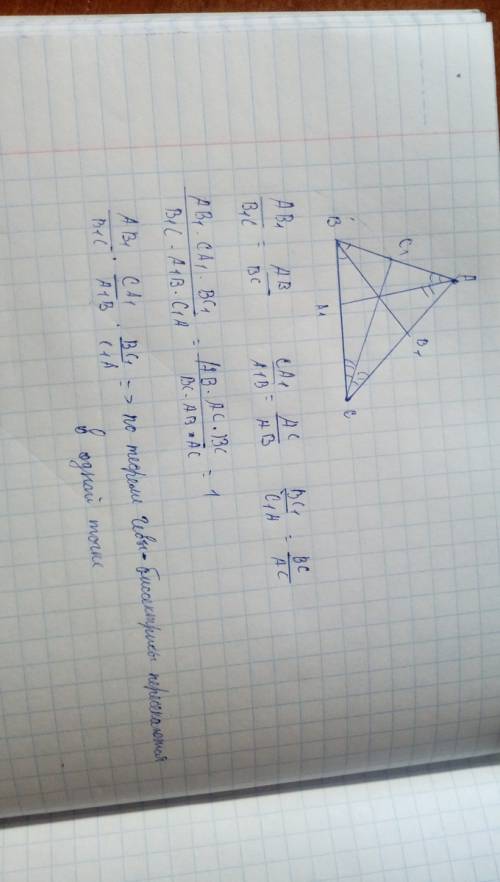 A
C₁
B₁
B
A₁
C
AB₁/B₁C = AB/BC CA₁/A₁B = AC/AB BC₁/C₁A = BC/AC
AB₁·CA₁·BC₁/B₁C·A₁B·C₁A = AB·AC·BC/BC·AB·AC = 1
AB₁/B₁C · CA₁/A₁B · BC₁/C₁A => по теореме Чевы биссектрисы пересекаются
в одной точке